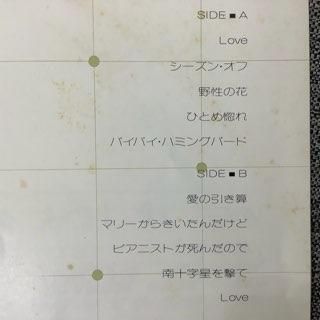 SIDE■A
Love
シーズン・オフ
野性の花
ひとめ惚れ
バイバイ・ハミングバード
SIDE■B
愛の引き算
マリーからきいたんだけど
ピアニストが死んだので
南十字星を撃て
Love